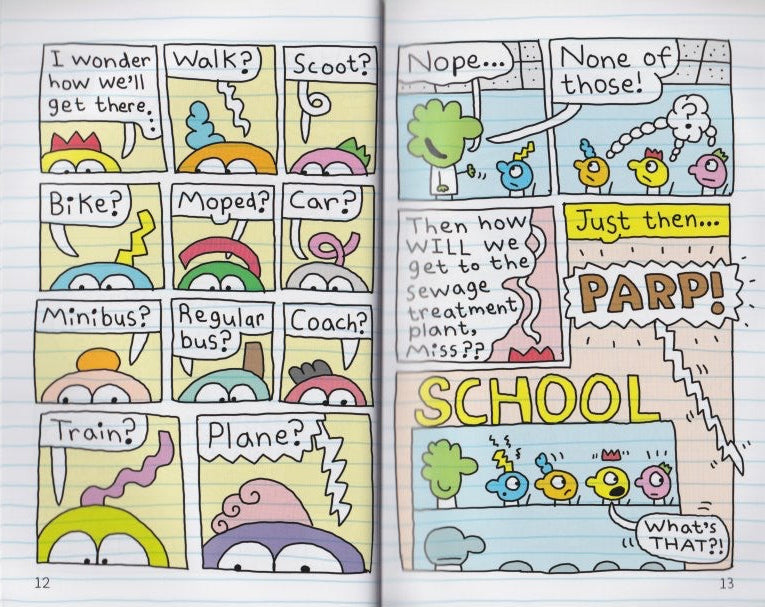 I wonder
how we'll
get there...
Walk?
Scoot?
Bike?
Moped?
Car?
Minibus?
Regular
bus?
Coach?
Train?
Plane?
12
Nope...
None of
those!
?
Then how
WILL we
get to the
sewage
treatment
plant,
Miss??
Just then...
PARP!
SCHOOL
What's
THAT?!
13